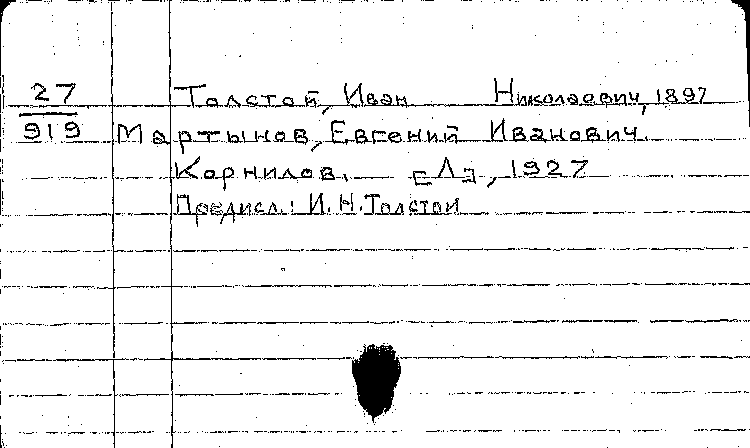 27 Толстой, Иван Николаевич, 1897
919 Мартынов, Евгений Иванович.
Корнилов. [Л], 1927
Предисл.: И.Н.Толстой